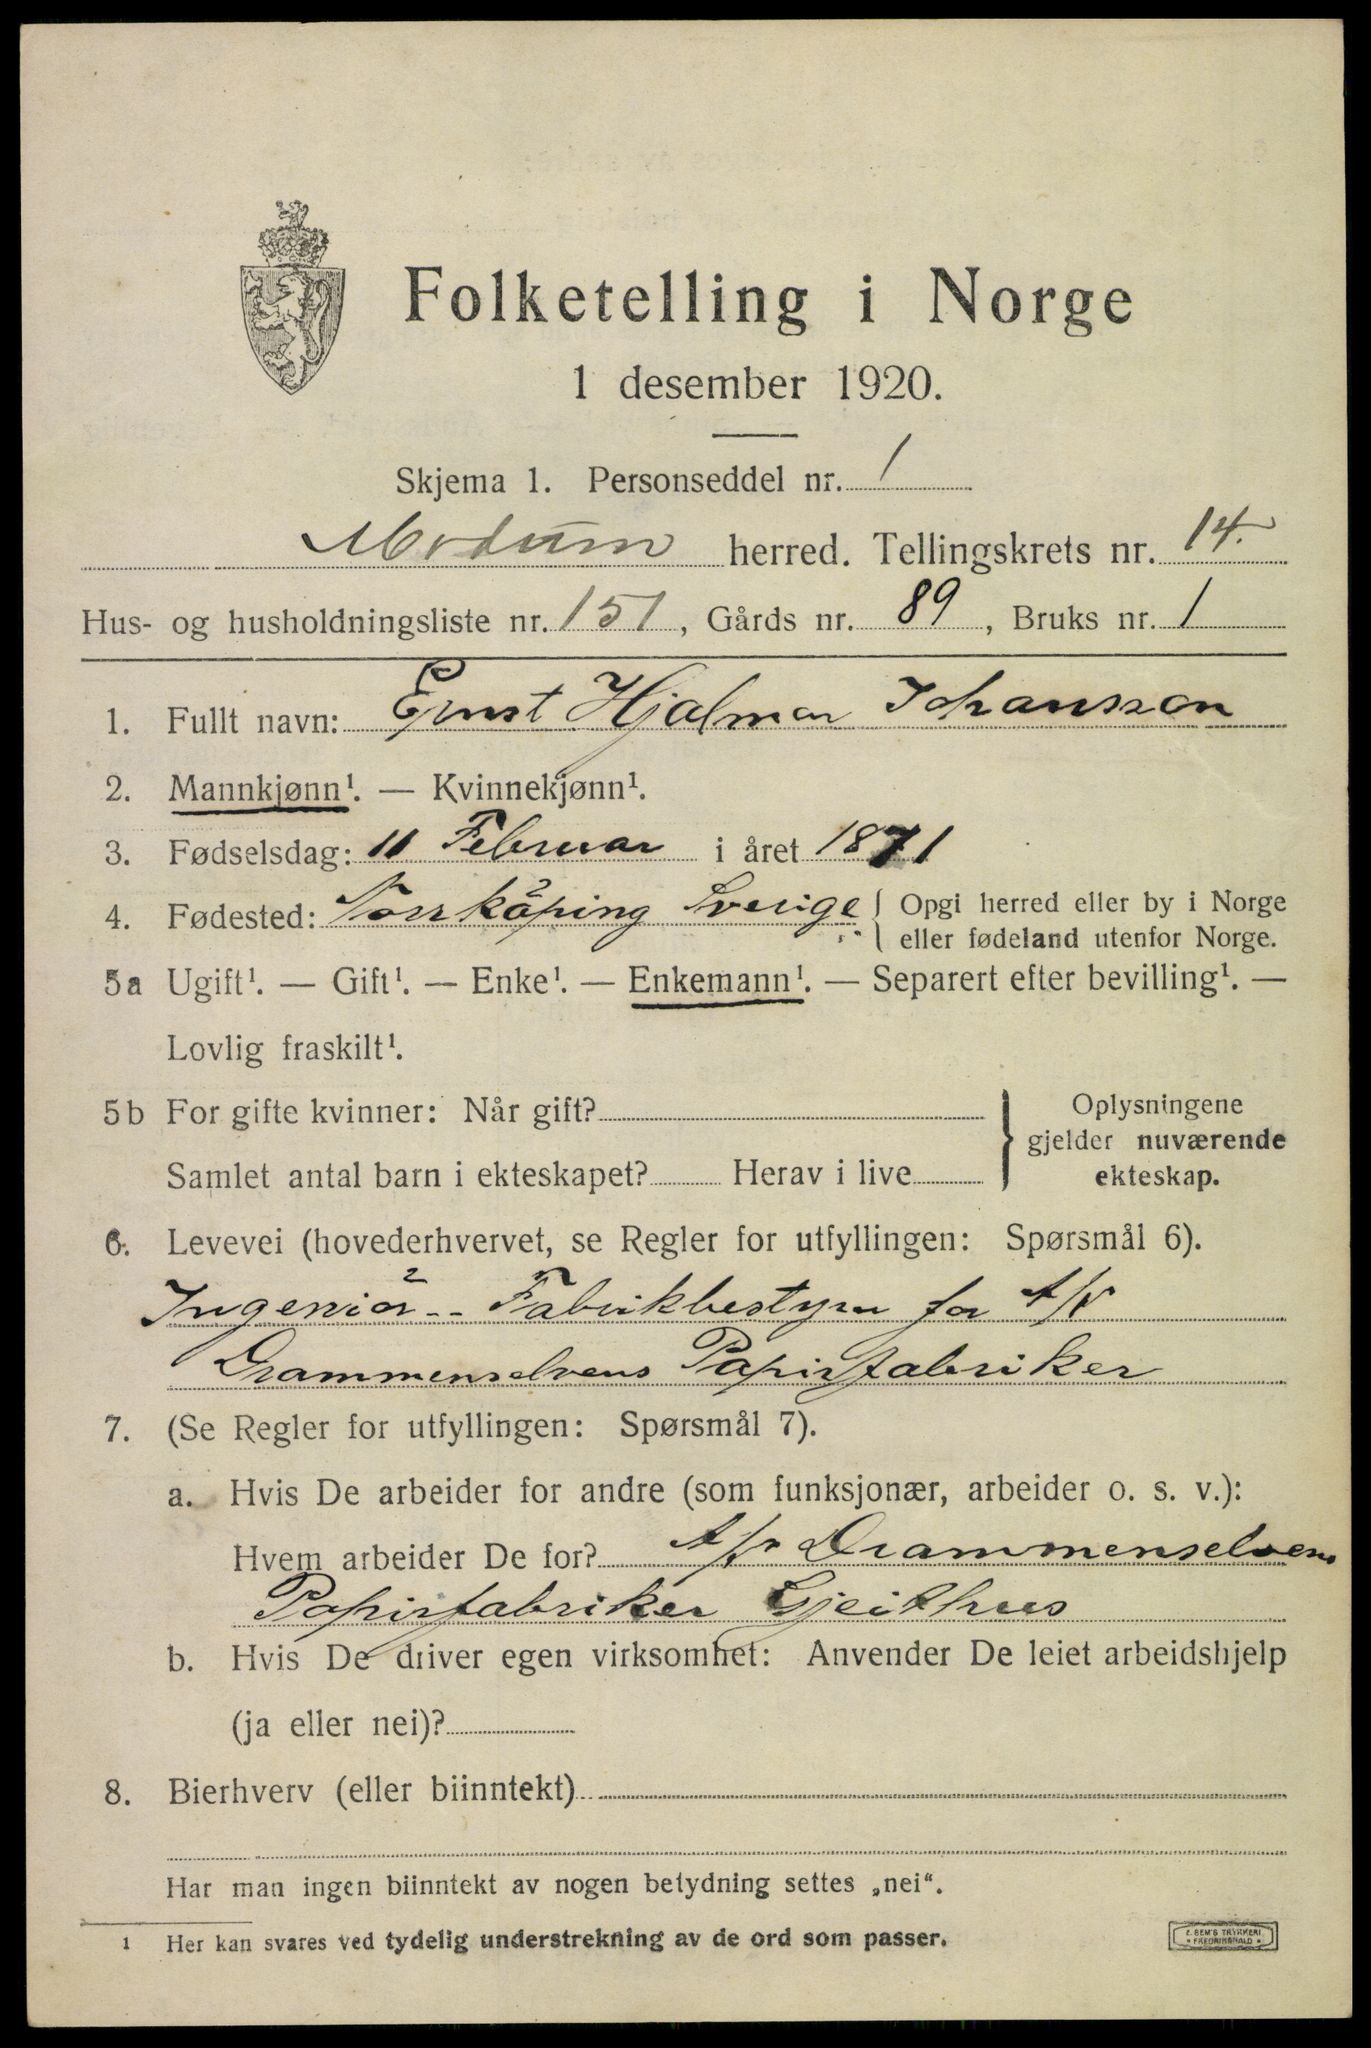 Folketelling i Norge
1 desember 1920.
Skjema 1. Personseddel nr. 1
Modum herred. Tellingskrets nr. 14.
Hus- og husholdningsliste nr. 151, Gårds nr. 89, Bruks nr. 1
1. Fullt navn: Ernst Hjalmar Johansson
2. Mannkjønn¹. — Kvinnekjønn¹.
3. Fødselsdag: 11 Februar i året 1871
4. Fødested: Norrköping Sverige { Opgi herred eller by i Norge
eller fødeland utenfor Norge.
5a Ugift¹. — Gift¹. — Enke¹. — Enkemann¹. — Separert efter bevilling¹. —
Lovlig fraskilt¹.
5b For gifte kvinner: Når gift? } Oplysningene
gjelder nuværende
Samlet antal barn i ekteskapet? Herav i live
ekteskap.
6. Levevei (hovederhvervet, se Regler for utfyllingen: Spørsmål 6).
Ingeniör -- Fabrikbestyrer for A/S
Drammenselvens Papirfabriker
7. (Se Regler for utfyllingen: Spørsmål 7).
a. Hvis De arbeider for andre (som funksjonær, arbeider o. s. v.):
Hvem arbeider De for? A/S Drammenselvens
Papirfabriker Gjeithus
b. Hvis De driver egen virksomhet: Anvender De leiet arbeidshjelp
(ja eller nei)?
8. Bierhverv (eller biinntekt)
Har man ingen biinntekt av nogen betydning settes „nei“.
¹ Her kan svares ved tydelig understrekning av de ord som passer.
E. SEM'S TRYKKERI
* FREDRIKSHALD *